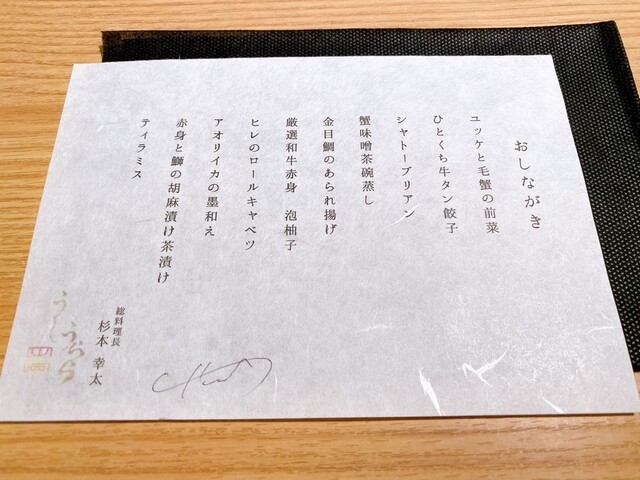 おしながき
ユッケと毛蟹の前菜
ひとくち牛タン餃子
シャトーブリアン
蟹味噌茶碗蒸し
金目鯛のあられ揚げ
厳選和牛赤身　泡柚子
ヒレのロールキャベツ
アオリイカの墨和え
赤身と鰤の胡麻漬け茶漬け
ティラミス
総料理長
杉本 幸太